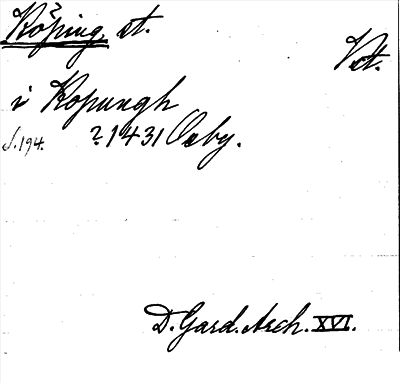 Köping, st.
Vst.
i Kopungh
s. 194. ? 1431 Örby.
D. Gard. Arch. XVI.